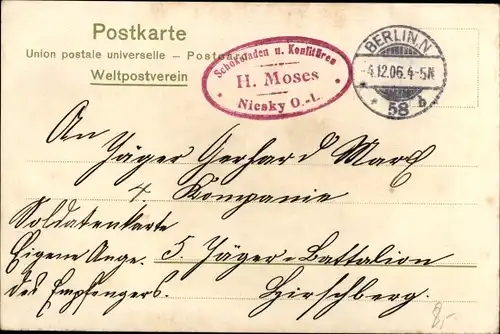 Postkarte
Union postale universelle – Postcard
Weltpostverein
Schokoladen u. Konfitüren
H. Moses
Niesky O.-L.
BERLIN.N
-4.12.06.4-5N
* 58 b
An
Jäger Gerhard Marx
4 Kompanie
Soldatenkarte
Eigene Ange. 5. Jäger=Battalion
des Empfengers. Hirschberg.
8,-